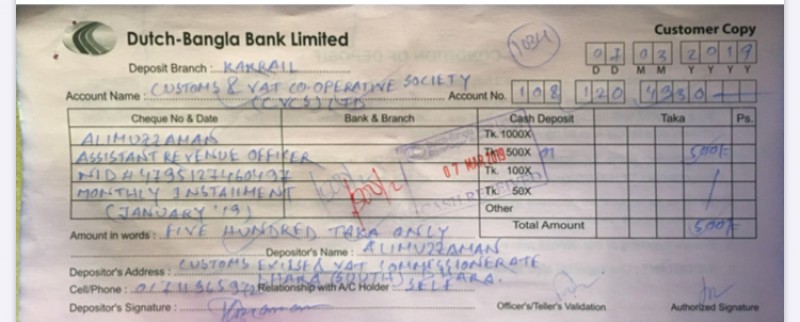 1034
Customer Copy
Dutch-Bangla Bank Limited
07 03 2019
D D M M Y Y Y Y
Deposit Branch : KAKRAIL
Account Name : CUSTOMS & VAT CO-OPERATIVE SOCIETY
(CVCS) LTD
Account No. 108 120 4330
Cheque No & Date Bank & Branch Cash Deposit Taka Ps.
ALIMUZZAMAN Tk. 1000X
ASSISTANT REVENUE OFFICER Tk. 500X 01 500/-
NID # 4795127460497 Tk. 100X
MONTHLY INSTALLMENT Tk. 50X
(JANUARY '19) Other
07 MAR 2019
CASH RECEIVED
Total Amount 500/-
Amount in words : FIVE HUNDRED TAKA ONLY
Depositor's Name : ALIMUZZAMAN
Depositor's Address : CUSTOMS EXCISE & VAT COMMISSIONERATE
DHAKA (SOUTH), DHAKA.
Cell/Phone : Relationship with A/C Holder : SELF
Depositor's Signature :
Officer's/Teller's Validation
Authorized Signature